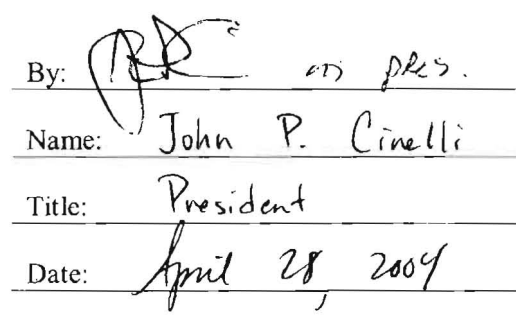 By: as pres.
Name: John P. Cinelli
Title: President
Date: April 28, 2004